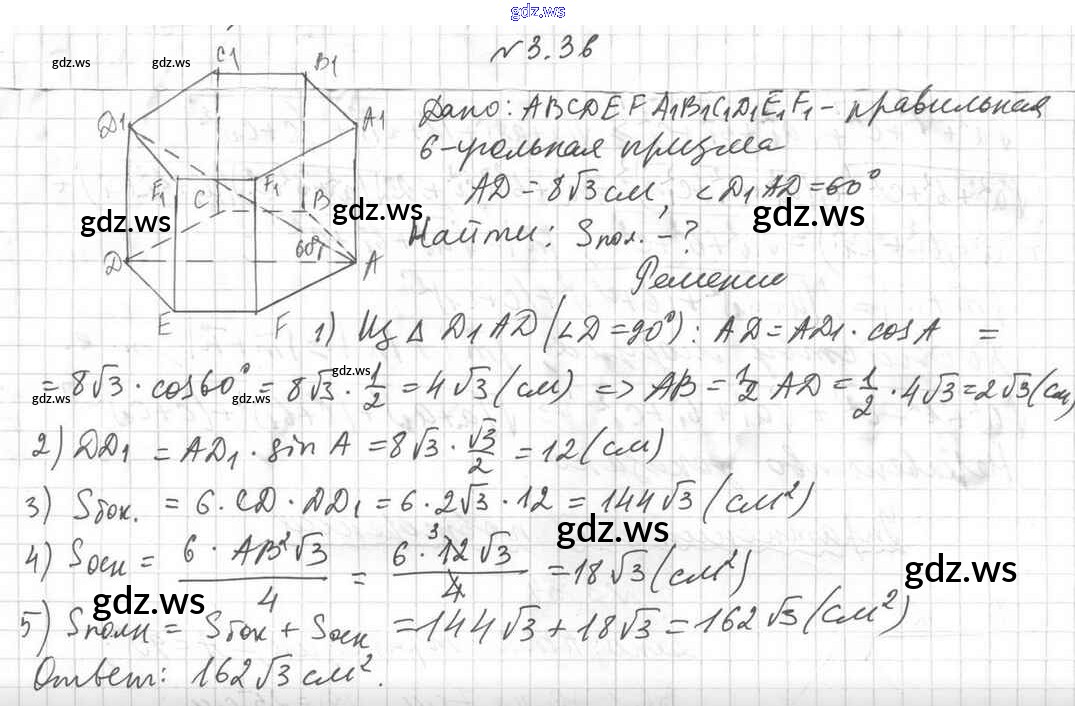 gdz.ws
№ 3.36
gdz.ws gdz.ws
C1 B1
D1 A1
Дано: ABCDEFA1B1C1D1E1F1 - правильная
6-угольная призма
F1 C F1 B
AD = 8√3 см, ∠D1AD = 60°
gdz.ws gdz.ws gdz.ws
Найти: Sпол. - ?
60°
D A
Решение
E F
1) Из △ D1AD (∠D = 90°): AD = AD1 · cos A =
= 8√3 · cos60° = 8√3 · 1/2 = 4√3 (см) => AB = 1/2 AD = 1/2 · 4√3 = 2√3 (см)
gdz.ws gdz.ws gdz.ws
2) DD1 = AD1 · sin A = 8√3 · √3/2 = 12 (см)
3) Sбок. = 6 · CD · DD1 = 6 · 2√3 · 12 = 144√3 (см²)
gdz.ws
4) Sосн = 6 · AB²√3/4 = 6 · 12 3 √3/4 = 18√3 (см²)
gdz.ws
gdz.ws
5) Sполн = Sбок + Sосн = 144√3 + 18√3 = 162√3 (см²)
Ответ: 162√3 см².